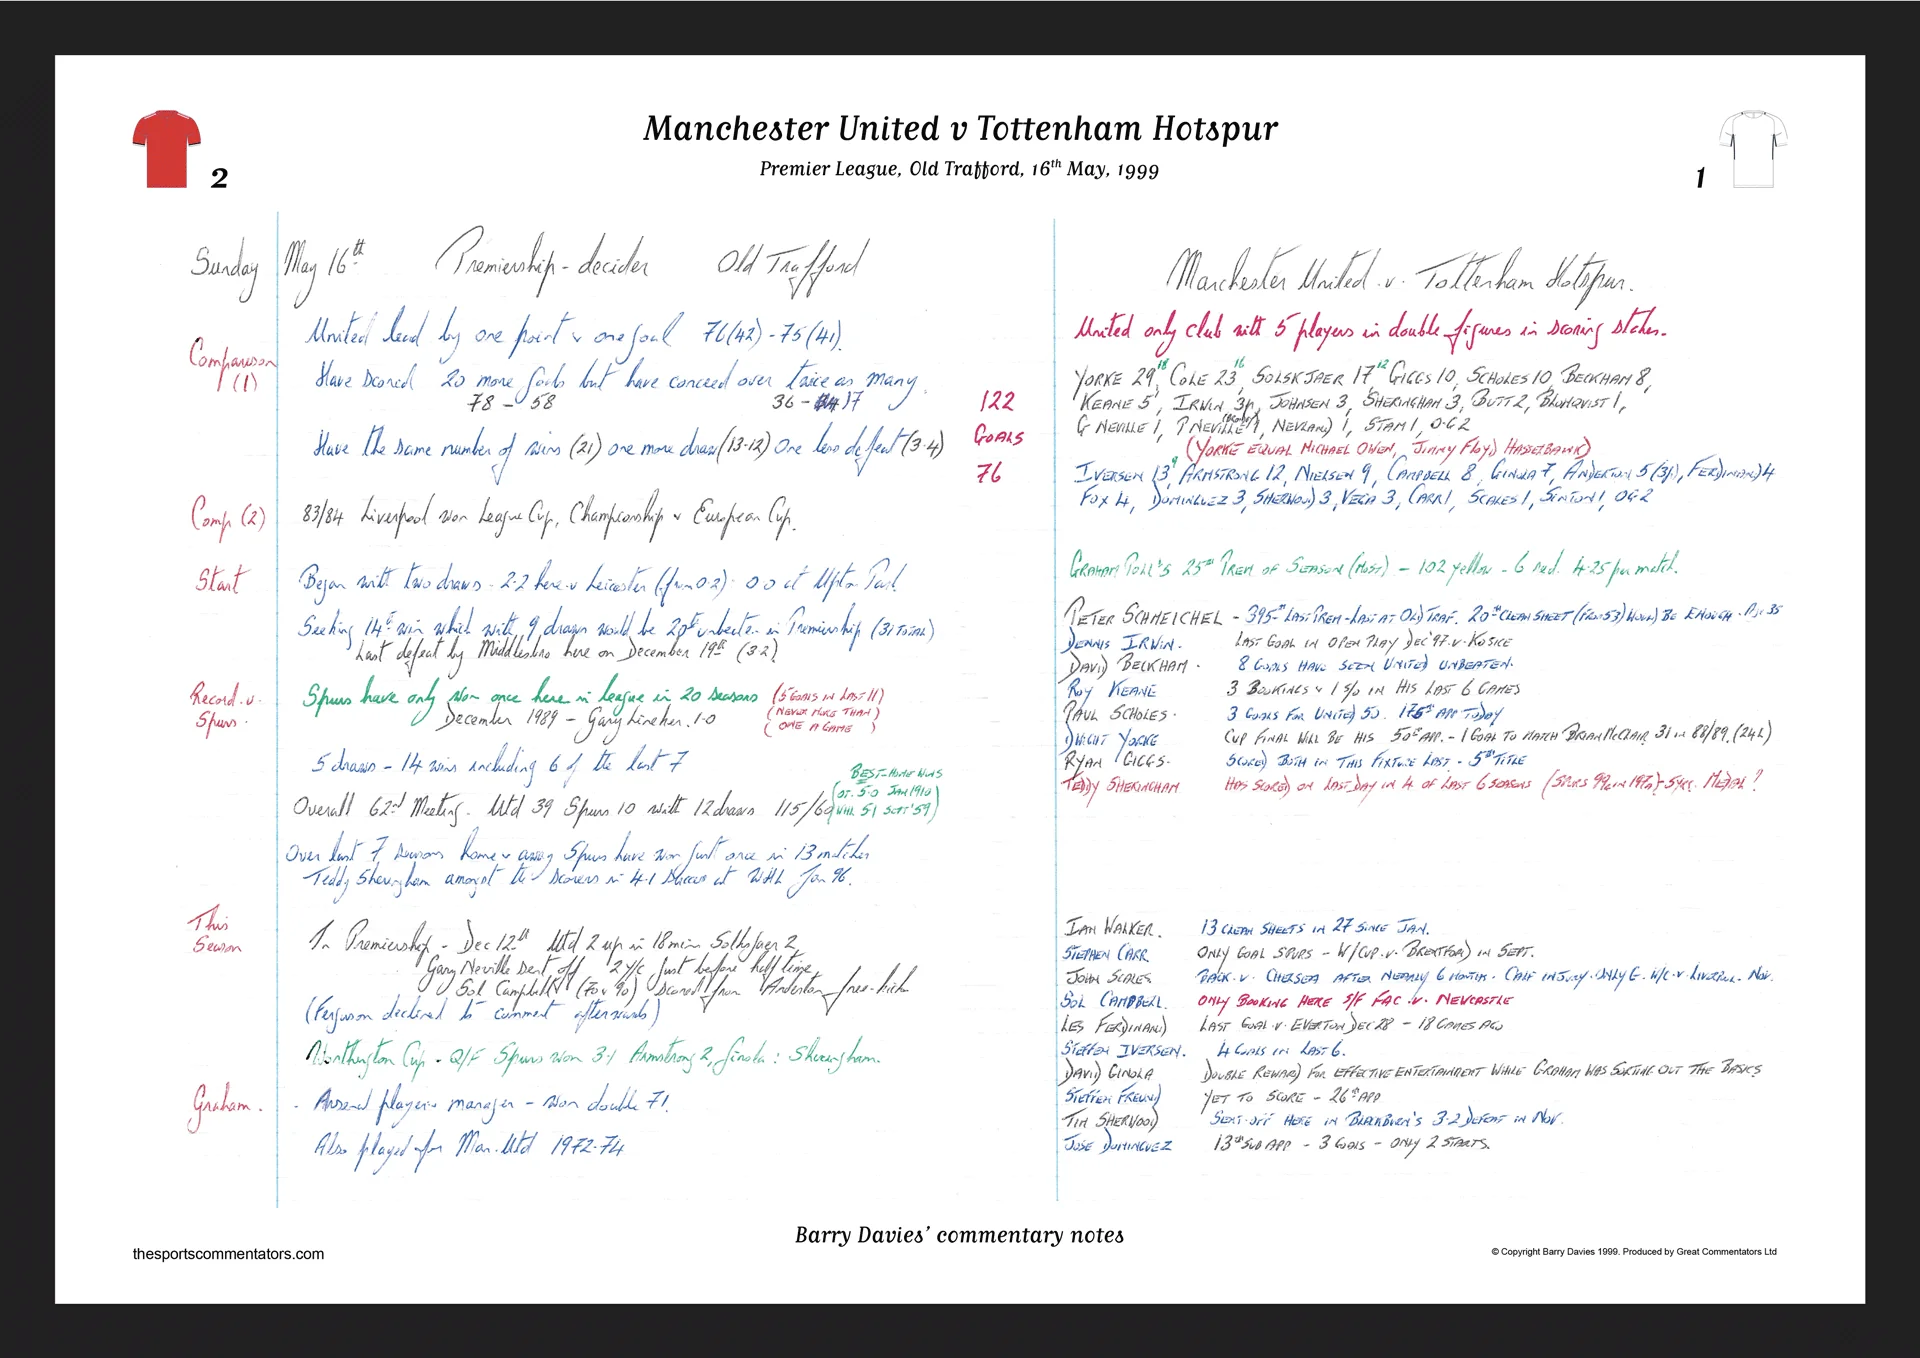 Manchester United v Tottenham Hotspur
Premier League, Old Trafford, 16th May, 1999
2
1
Sunday May 16th Premiership - decider Old Trafford
Comparison (1)
United lead by one point & one goal 76(42) - 75(41).
Have scored 20 more goals but have conceed over twice as many.
78 - 58 36 - 17
Have the same number of wins (21) one more draw (13-12) One less defeat (3-4)
122
GOALS
76
Comp (2) 83/84 Liverpool won League Cup, Championship & European Cup.
Start Began with two draws - 2-2 here v Leicester (from 0 2) 0 0 at Upton Park
Seeking 14th win which with 9 draws would be 20th unbeaten in Premiership (31 TOTAL)
Last defeat by Middlesbro here on December 19th (3 2)
Record v. Spurs. Spurs have only won once here in league in 20 seasons
December 1989 - Gary Lineker. 1-0
(5 GOALS IN LAST 11)
(NEVER MORE THAN)
( ONE A GAME )
5 draws - 14 wins including 6 of the last 7
BEST - HOME WINS
OT. 5-0 JAN 1910
WHL 5 1 SEPT '59
Overall 62nd Meeting. Utd 39 Spurs 10 with 12 draws 115/60
Over last 7 seasons home & away Spurs have won just once in 13 matches
Teddy Sheringham amongst the scorers in 4-1 success at WHL Jan 96.
This Season
In Premiership - Dec 12th Utd 2 up in 18 min Solksjaer 2,
Gary Neville sent off 2 y/c just before half time
Sol Campbell (70 & 90) scored from Anderton free-kick
(Ferguson declined to comment afterwards)
Worthington Cup - Q/F Spurs won 3-1 Armstrong 2, Ginola : Sheringham.
Graham. - Arsenal player & manager - won double 71.
Also played for Man. Utd 1972-74
Manchester United .v. Tottenham Hotspur.
United only club with 5 players in double figures in scoring stakes.
YORKE 29 18, COLE 23 16, SOLSKJAER 17 12 GIGGS 10, SCHOLES 10, BECKHAM 8,
KEANE 5, IRWIN 3p, JOHNSEN 3, SHERINGHAM 3, BUTT 2, BLOMQVIST 1,
G NEVILLE 1, P NEVILLE 1, NEVLAND 1, STAM 1, O.G 2
(YORKE EQUAL MICHAEL OWEN, JIMMY FLOYD HASSELBAINK)
IVERSEN 13 9, ARMSTRONG 12, NIELSEN 9, CAMPBELL 8, GINOLA 7, ANDERTON 5 (3p), FERDINAND 4
FOX 4, DOMINGUEZ 3, SHERWOOD 3, VEGA 3, CARR 1, SCALES 1, SINTON 1, OG 2
GRAHAM POLL'S 25th PREM OF SEASON (MOST) - 102 yellow - 6 red. 4-25 per match.
PETER SCHMEICHEL - 395th LAST PREM - LAST AT OLD TRAF. 20th CLEAN SHEET (FROM 53) WOULD BE ENOUGH. 35
DENNIS IRWIN. LAST GOAL IN OPEN PLAY DEC '97 .v. KOSICE
DAVID BECKHAM. 8 GOALS HAVE SEEN UNITED UNBEATEN.
ROY KEANE 3 BOOKINGS & 1 S/O IN HIS LAST 6 GAMES
PAUL SCHOLES. 3 GOALS FOR UNITED 50. 175th APP TODAY
DWIGHT YORKE CUP FINAL WILL BE HIS 50th APP. - 1 GOAL TO MATCH BRIAN McCLAIR 31 IN 88/89. (24 L)
RYAN GIGGS. SCORED BOTH IN THIS FIXTURE LAST - 5th TITLE
TEDDY SHERINGHAM HAS SCORED ON LAST DAY IN 4 OF LAST 6 SEASONS (SPURS 99 IN 197) - 5 yrs. MEDAL?
IAN WALKER. 13 CLEAN SHEETS IN 27 SINCE JAN.
STEPHEN CARR. ONLY GOAL SPURS - W/CUP .v. BRENTFORD IN SEPT.
JOHN SCALES. BACK .v. CHELSEA AFTER NEARLY 6 MONTHS. CALF INJURY. ONLY G. W/C .v. LIVERPOOL. NOV.
SOL CAMPBELL. ONLY BOOKING HERE S/F FAC .v. NEWCASTLE
LES FERDINAND LAST GOAL .v. EVERTON DEC 28 - 18 GAMES AGO
STEFFEN IVERSEN. 4 GOALS IN LAST 6.
DAVID GINOLA DOUBLE REWARD FOR EFFECTIVE ENTERTAINMENT WHILE GRAHAM WAS SORTING OUT THE BASICS
STEFFEN FREUND YET TO SCORE - 26th APP
TIM SHERWOOD SENT-OFF HERE IN BLACKBURN'S 3-2 DEFEAT IN NOV.
JOSE DOMINGUEZ 13th SUB APP - 3 GOALS - ONLY 2 STARTS.
Barry Davies' commentary notes
thesportscommentators.com
© Copyright Barry Davies 1999. Produced by Great Commentators Ltd